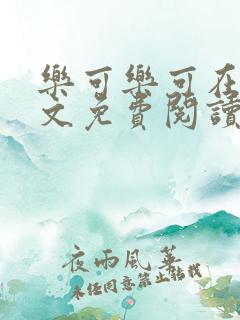 樂可樂可在
文免費閱讀
夜雨風華
未经同意禁止转载